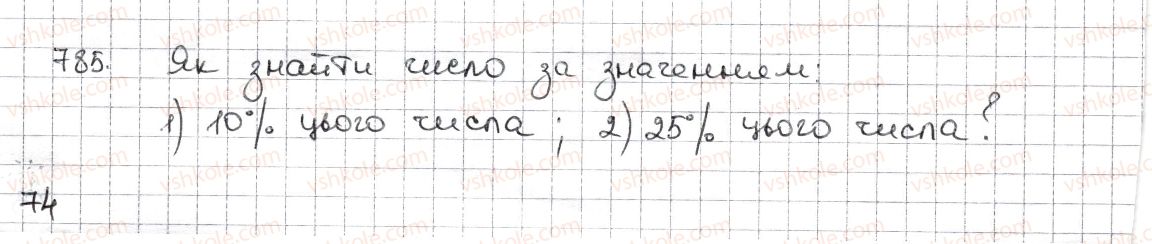 785. Як знайти число за значенням:
1) 10% цього числа; 2) 25% цього числа?
74